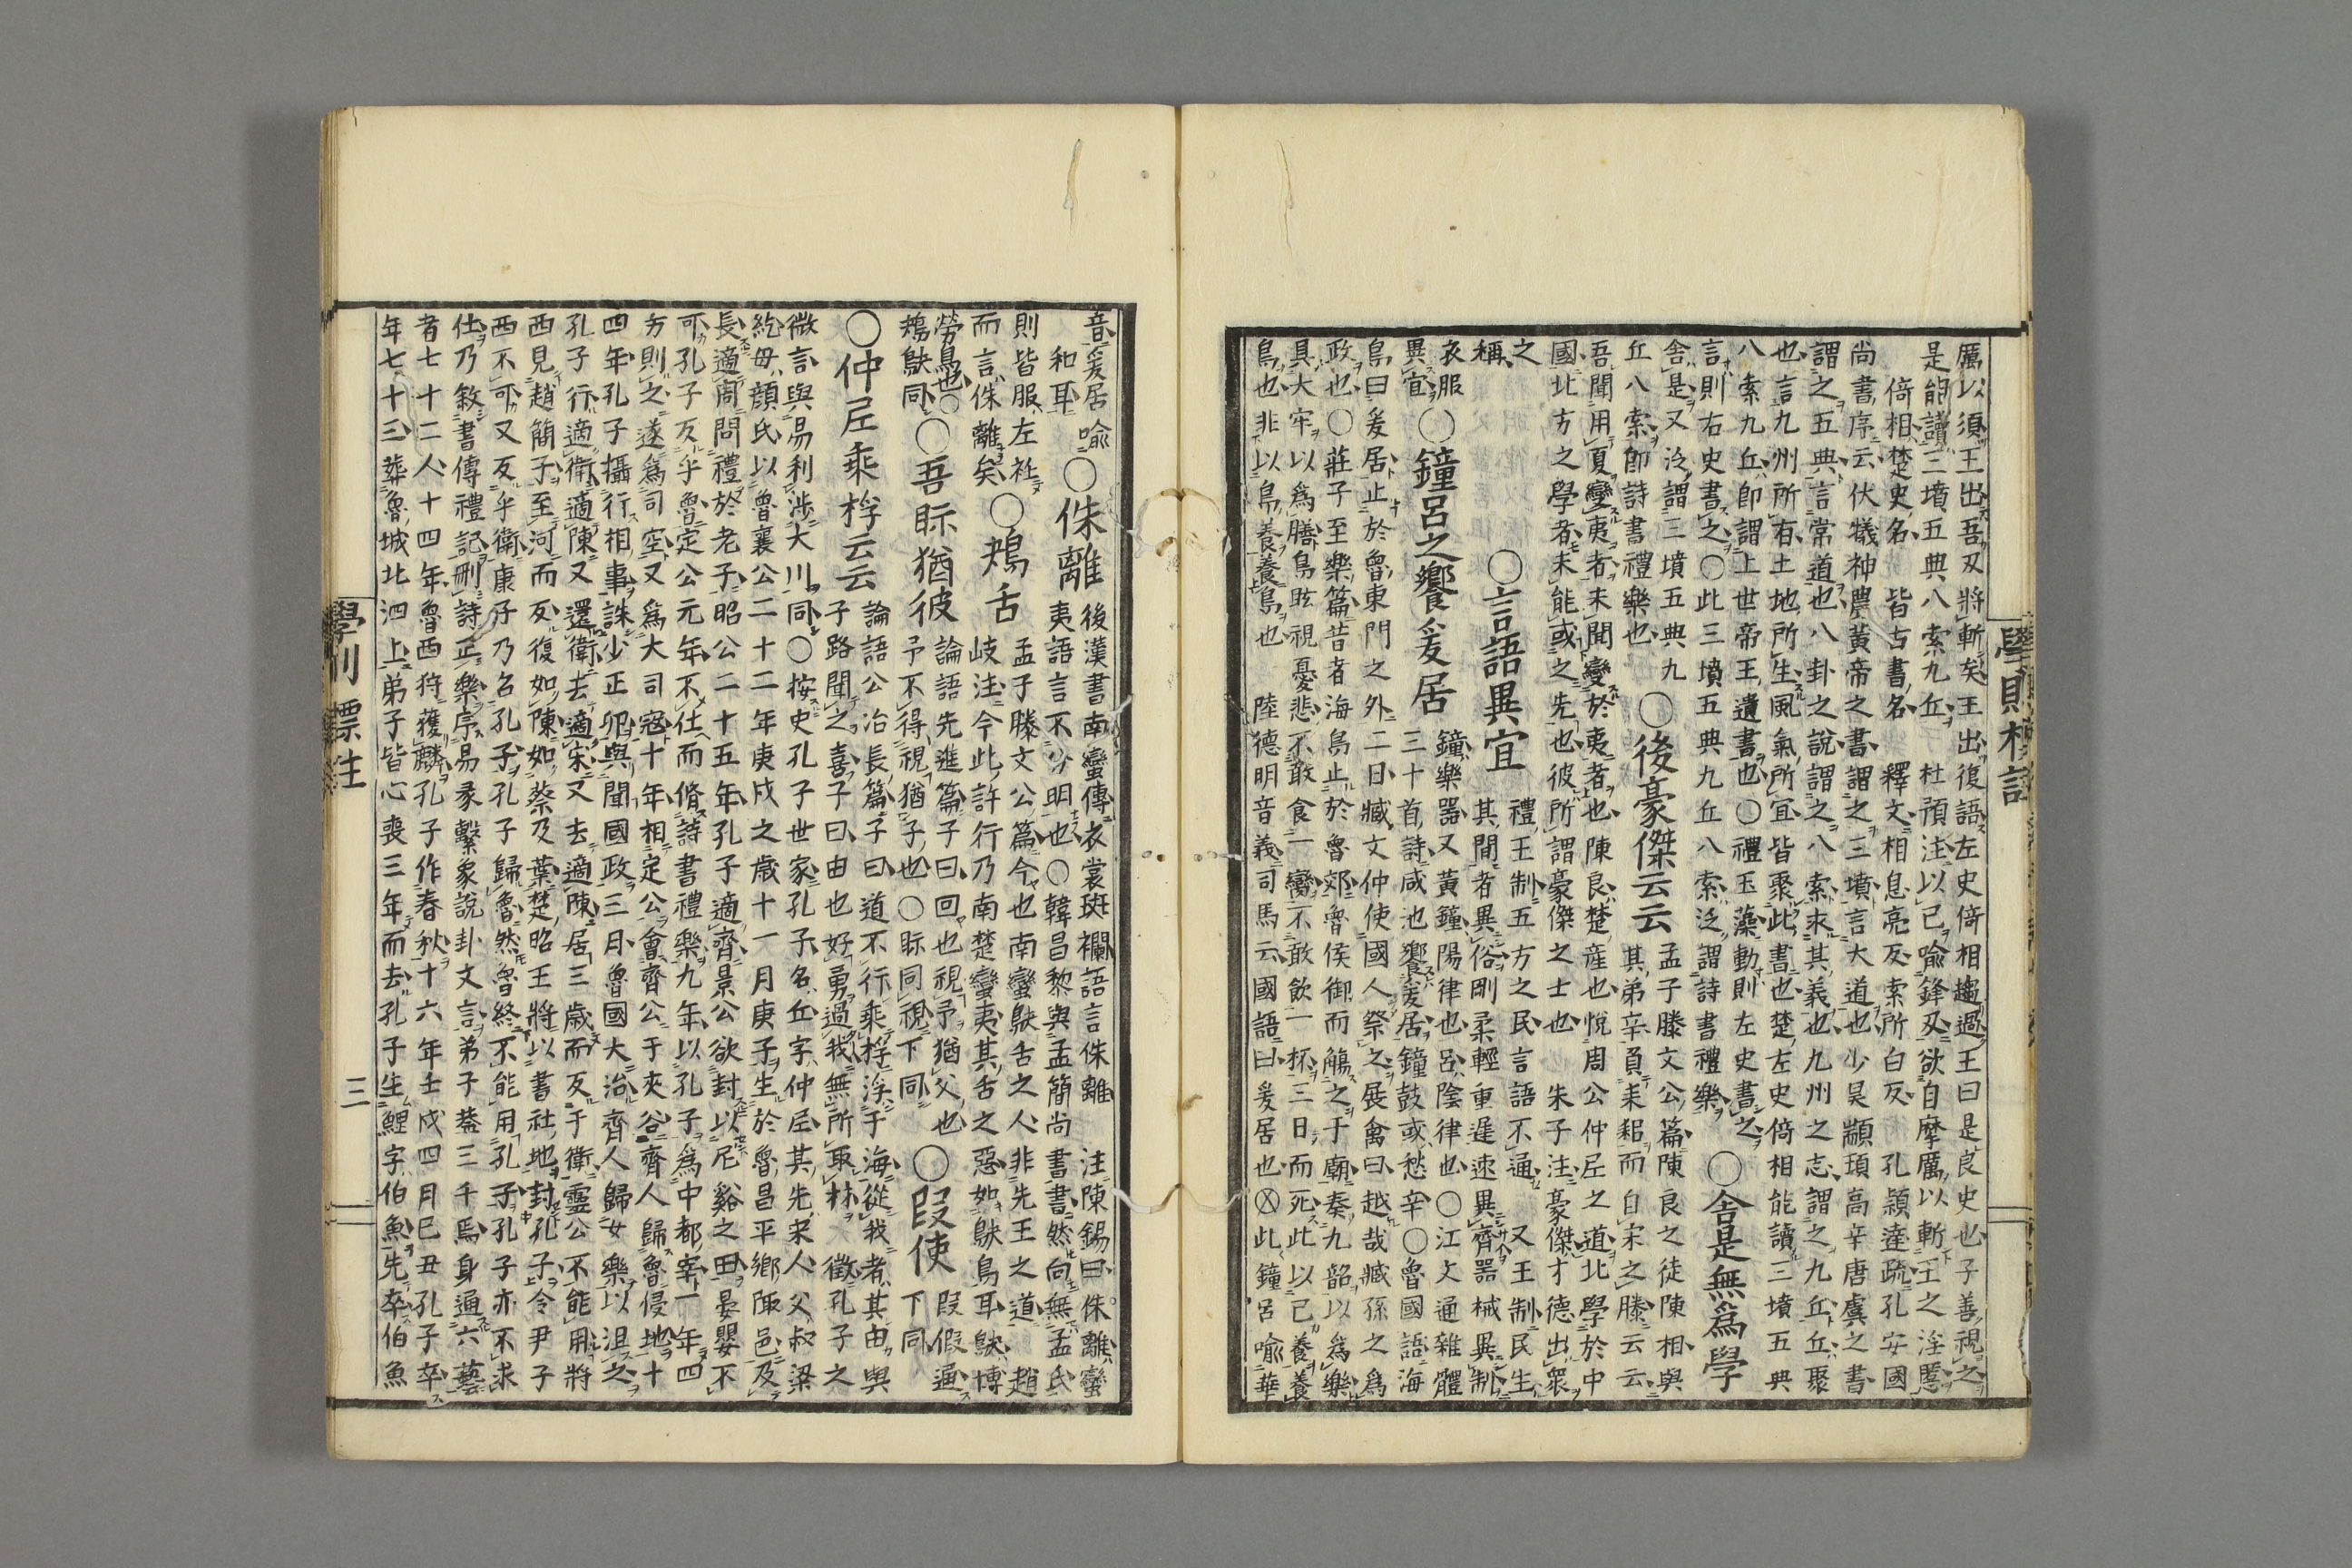 厲以須王出吾刄將斬矣王出復語左史倚相趨過王曰是良史也子善視之
是能讀三墳五典八索九丘 杜預注以已喩鋒刄欲自摩厲以斬王之淫慝
倚相楚史名 皆古書名 釋文相息亮反索所白反 孔頴達疏孔安國
尚書序云伏犧神農黃帝之書謂之三墳言大道也少昊顓頊高辛唐虞之書
謂之五典言常道也八卦之說謂之八索求其義也九州之志謂之九丘丘聚
也言九州所有土地所生風氣所宜皆聚此書也楚左史倚相能讀三墳五典
八索九丘即謂上世帝王遺書也〇禮玉藻動則左史書之
言則右史書之〇此三墳五典九丘八索泛謂詩書禮樂 〇舍是無爲學
舍是又泛謂三墳五典九
丘八索即詩書禮樂也 〇後豪傑云云 孟子滕文公篇陳良之徒陳相與
其弟辛負耒耜而自宋之滕云云
吾聞用夏變夷者未聞變於夷者也陳良楚產也悅周公仲尼之道北學於中
國北方之學者未能或之先也彼所謂豪傑之士也 朱子注豪傑才德出衆
之
稱 〇言語異宜 禮王制五方之民言語不通 又王制民生
其間者異俗剛柔輕重遲速異齊器械異制
衣服
異宜 〇鐘呂之饗爰居 鐘樂器又黃鐘陽律也呂陰律也〇江文通雜體
三十首詩咸池饗爰居鐘鼓或愁辛〇魯國語海
鳥曰爰居止於魯東門之外二日臧文仲使國人祭之展禽曰越哉臧孫之爲
政也〇莊子至樂篇昔者海鳥止於魯郊魯侯御而觴之于廟奏九韶以爲樂
具大牢以爲膳鳥眩視憂悲不敢食一臠不敢飮一杯三日而死此以已養養
鳥也非以鳥養養鳥也 陸德明音義司馬云國語曰爰居也⊗此鐘呂喩華
學則標註
音爰居喩
和耳 〇侏離 後漢書南蠻傳衣裳斑襴語言侏離 注陳錫曰侏離蠻
夷語言不分明也〇韓昌黎與孟簡尚書書然向無孟氏
則皆服左衽
而言侏離矣 〇鴂舌 孟子滕文公篇今也南蠻鴃舌之人非先王之道 趙
岐注今此許行乃南楚蠻夷其舌之惡如鴃鳥耳鴃博
勞鳥也〇
鴂鴃同 〇吾眎猶彼 論語先進篇子曰回也視予猶父也
予不得視猶子也〇眎同視下同 〇叚使 叚假通
下同
〇仲尼乘桴云云 論語公冶長篇子曰道不行乘桴浮于海從我者其由與
子路聞之喜子曰由也好勇過我無所取材 徵孔子之
微言與易利涉大川同〇按史孔子世家孔子名丘字仲尼其先宋人父叔梁
紇母顏氏以魯襄公二十二年庚戌之歲十一月庚子生於魯昌平鄉陬邑及
長適周問禮於老子昭公二十五年孔子適齊景公欲封以尼谿之田晏嬰不
可孔子反乎魯定公元年不仕而脩詩書禮樂九年以孔子爲中都宰一年四
方則之遂爲司空又爲大司寇十年相定公會齊公于夾谷齊人歸魯侵地十
四年孔子攝行相事誅少正卯與聞國政三月魯國大治齊人歸女樂以沮之
孔子行適衞適陳又還衞去適宋又去適陳居三歲而反于衞靈公不能用將
西見趙簡子至河而反復如陳如蔡及葉楚昭王將以書社地封孔子令尹子
西不可又反乎衞康子乃召孔子孔子歸魯然魯終不能用孔子孔子亦不求
仕乃敘書傳禮記刪詩正樂序易彖繫象說卦文言弟子蓋三千焉身通六藝
者七十二人十四年魯西狩獲麟孔子作春秋十六年壬戌四月巳丑孔子卒
年七十三葬魯城北泗上弟子皆心喪三年而去孔子生鯉字伯魚先卒伯魚
學則標註
三